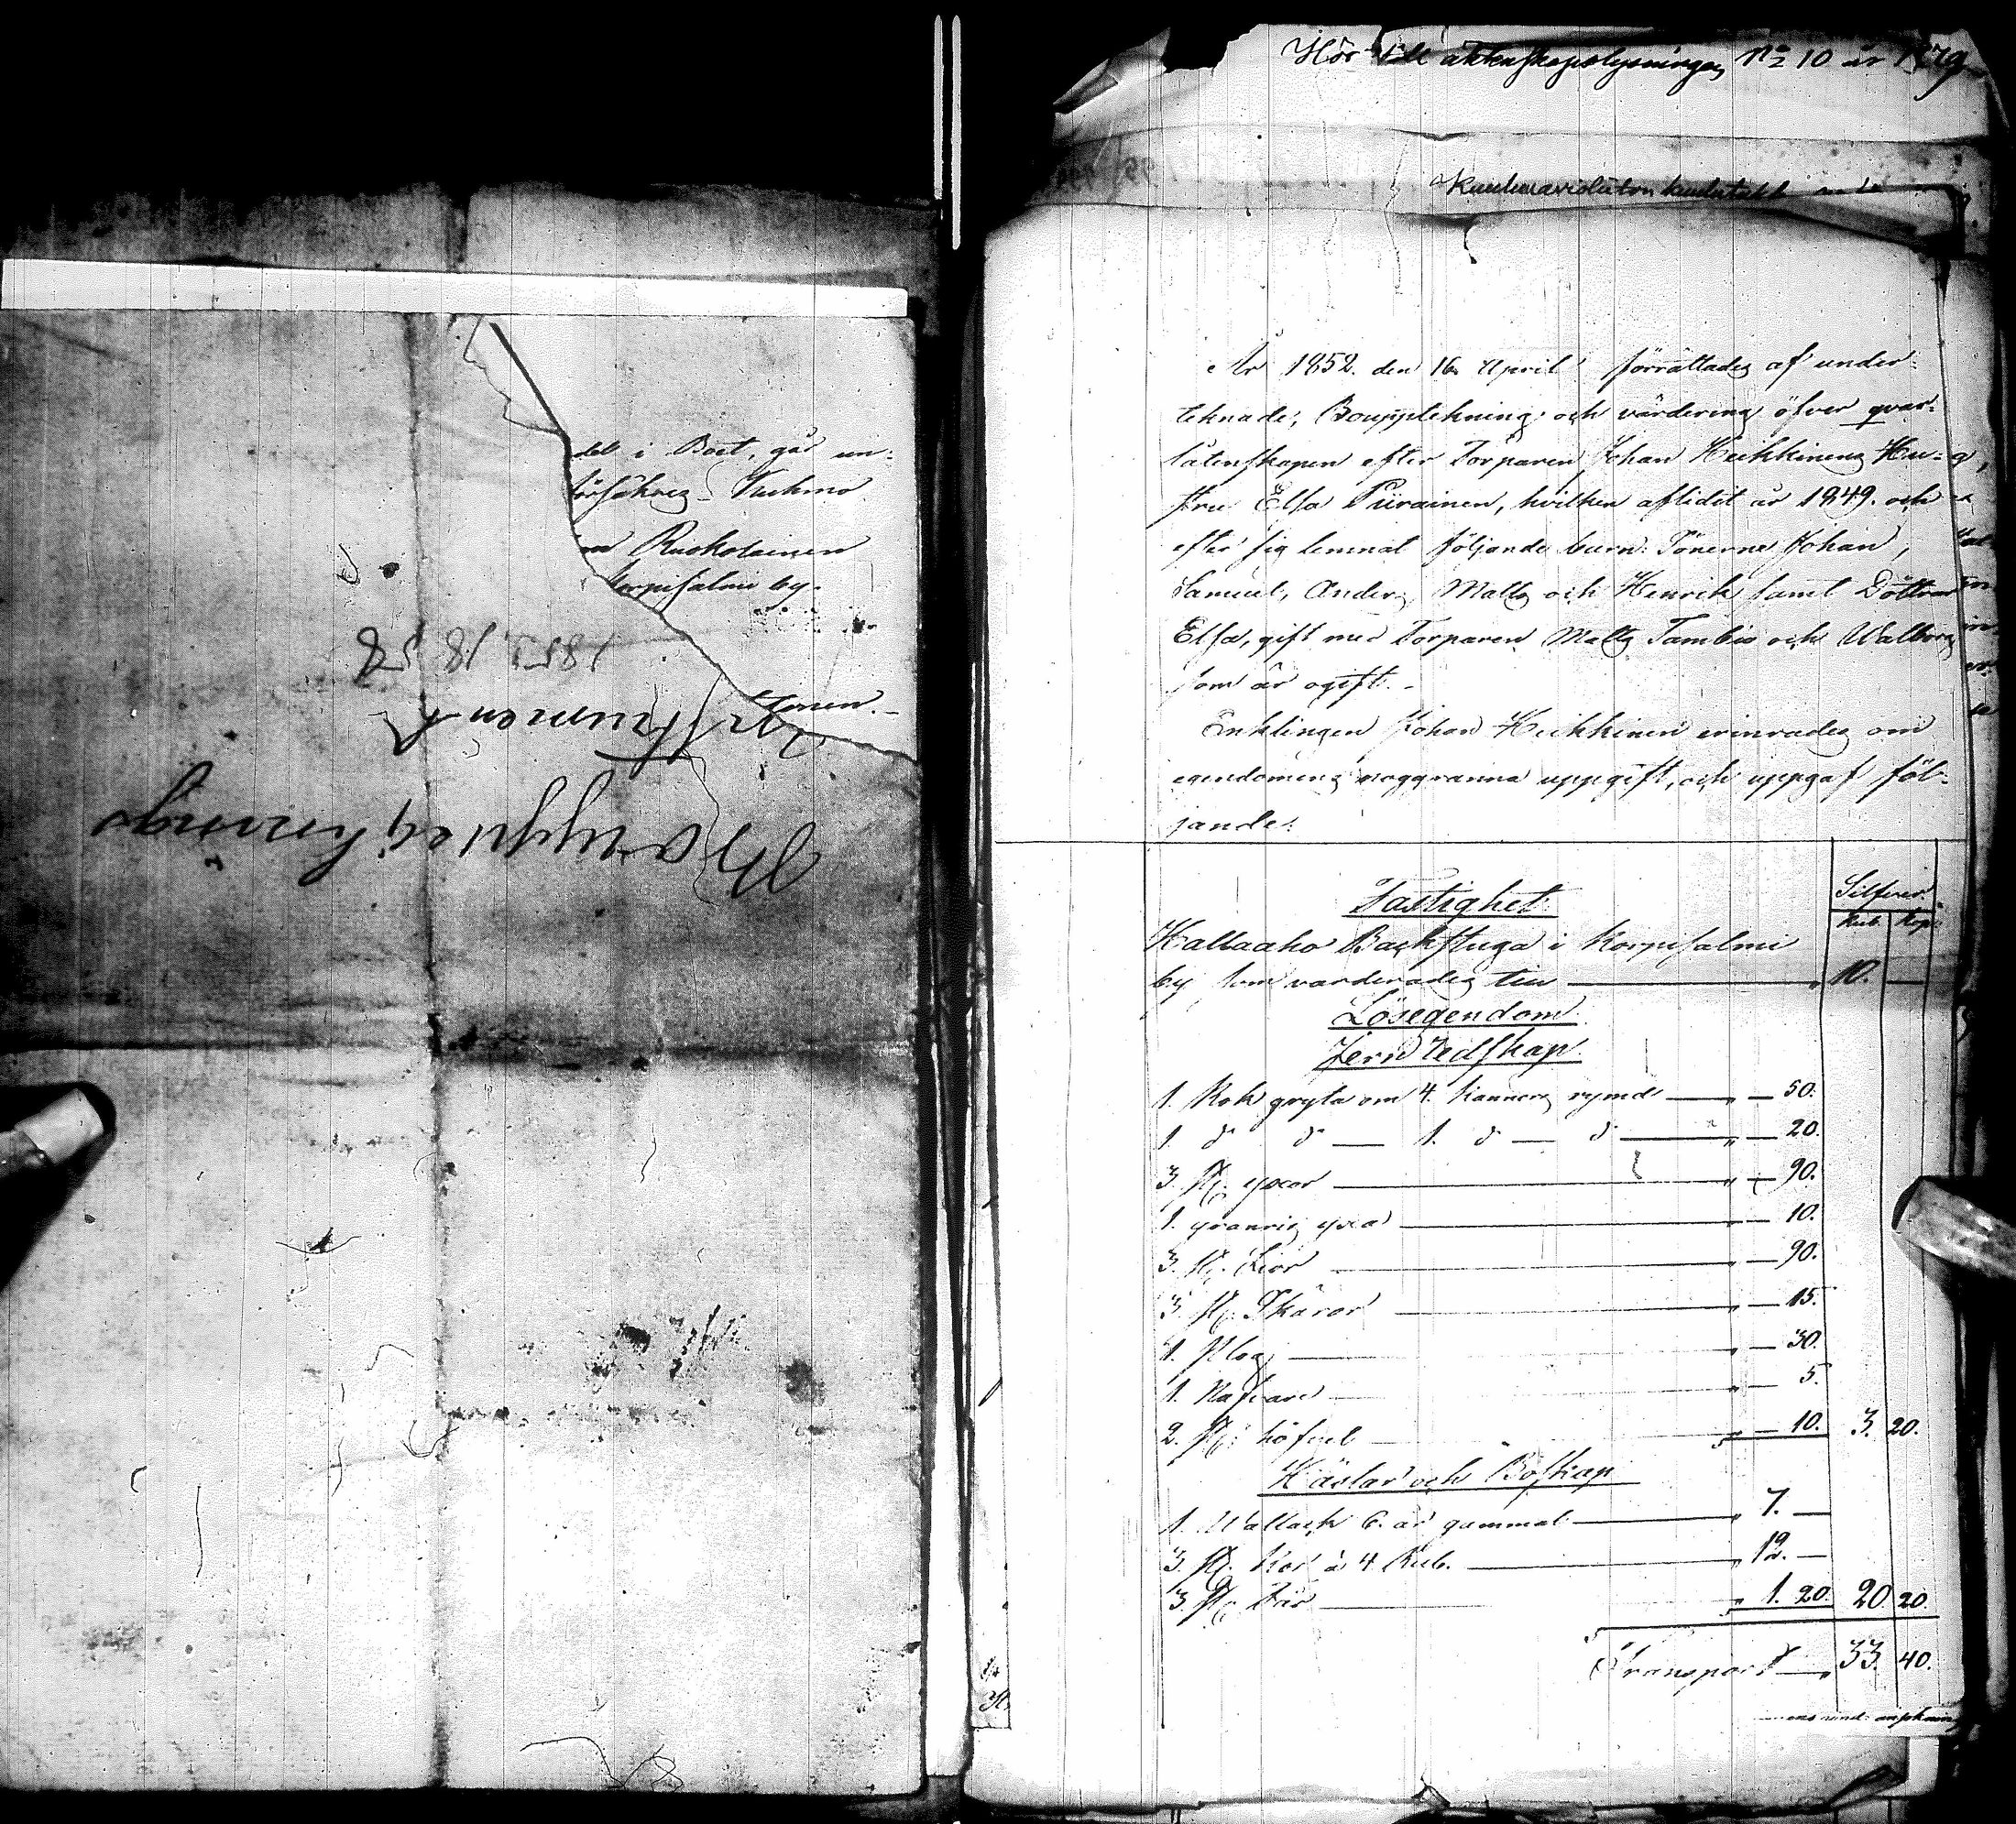 del i Boet, går un-
försäkras. Kuhmo
Ruokolainen
Korpisalmi by.
1852 18/5 52
Instrument
Bouppteknings
Hör till äktenskapslysningen No 10 år 1879
År 1852. den 16 April förrättades af under-
teknade, Boupptekning och värdering öfver qvar-
låtenskapen efter Torparen Johan Heikkinens Hu-
stru Elsa Piirainen, hvilken aflidit år 1849. och
efter sig lemnat följande barn: Sönerne Johan,
Samuel, Anders, Matts och Henrik samt Döttrar
Elsa, gift med Torparen Matts Tambio och Walborg
som är ogift. -
Enklingen Johan Heikkinen erinrades om
egendomens noggranna uppgift, och uppgaf föl-
jande:
Silfver.
Rub. Kop.
Fastighet
Kallaaho Backstuga i Korpisalmi
by som värderades till — 10. —
Lösegendom
Jern redskap
1. Kok gryta om 4. kannors rymd — " — 50.
1. do do — 1. do — do — " — 20.
3. st. yxor — " — 90.
1. yxa — " — 10.
3. st. Liar — " — 90.
3. st. Skäror — " — 15.
1. Plog — " — 30.
1. Nafvare — " — 5.
2. st. höfvel — " — 10. 3. 20.
Hästar och Boskap
1. Wallack 6. år gammal — " 7. —
3. st. Kor à 4 Rub. — " 12. —
3. st. Får — " 1. 20. 20 20.
Transport — " 33. 40.